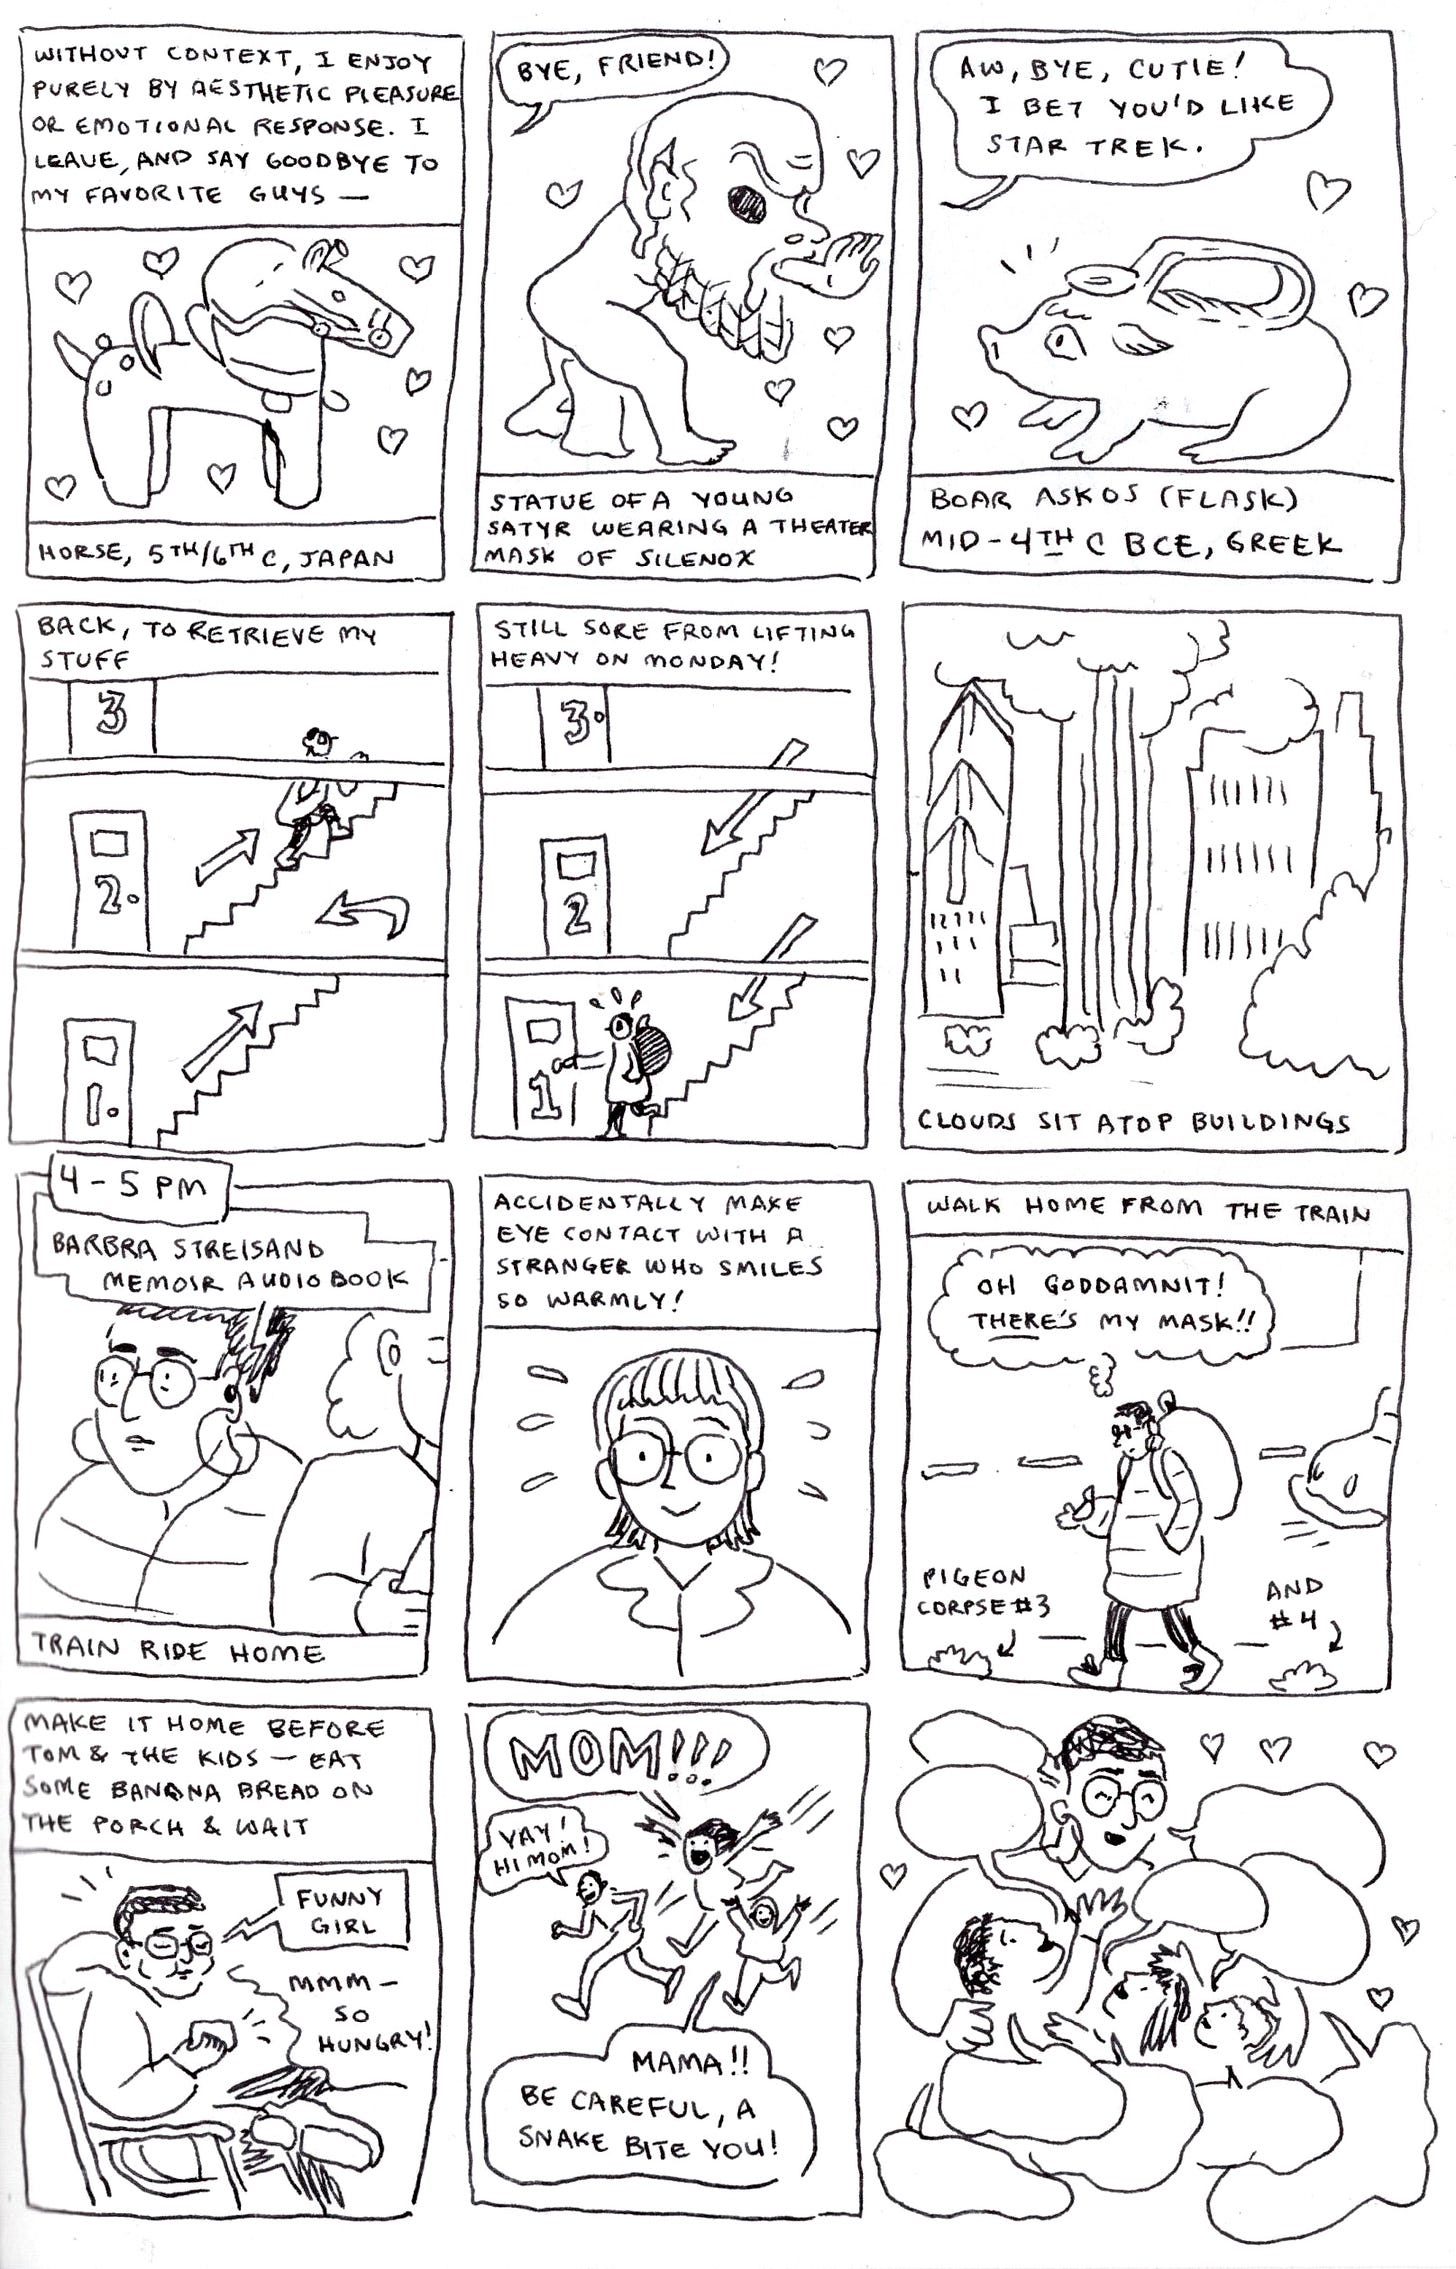 WITHOUT CONTEXT, I ENJOY
PURELY BY AESTHETIC PLEASURE
OR EMOTIONAL RESPONSE. I
LEAVE, AND SAY GOODBYE TO
MY FAVORITE GUYS —
HORSE, 5TH/6TH C, JAPAN
BYE, FRIEND!
STATUE OF A YOUNG
SATYR WEARING A THEATER
MASK OF SILENOX
AW, BYE, CUTIE!
I BET YOU'D LIKE
STAR TREK.
BOAR ASKOS (FLASK)
MID-4TH C BCE, GREEK
BACK, TO RETRIEVE MY
STUFF
3
2
1
STILL SORE FROM LIFTING
HEAVY ON MONDAY!
3
2
1
CLOUDS SIT ATOP BUILDINGS
4-5 PM
BARBRA STREISAND
MEMOIR AUDIOBOOK
TRAIN RIDE HOME
ACCIDENTALLY MAKE
EYE CONTACT WITH A
STRANGER WHO SMILES
SO WARMLY!
WALK HOME FROM THE TRAIN
OH GODDAMNIT!
THERE'S MY MASK!!
PIGEON
CORPSE #3
AND
#4
MAKE IT HOME BEFORE
TOM & THE KIDS — EAT
SOME BANANA BREAD ON
THE PORCH & WAIT
FUNNY
GIRL
MMM —
SO
HUNGRY!
MOM!!!
YAY!
HI MOM!
MAMA!!
BE CAREFUL, A
SNAKE BITE YOU!